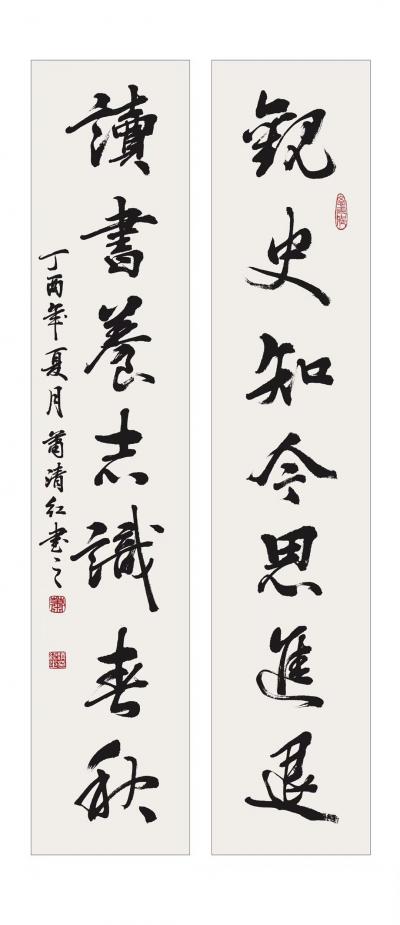 觀史知今思進退
讀書養志識春秋
丁酉年夏月蕭清紅書之